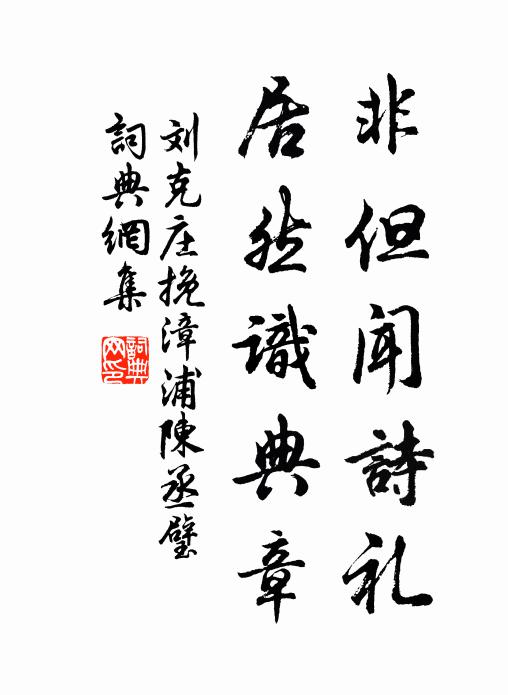 非但闻詩礼
居然識典章
刘克庄挽漳浦陳丞璧
詞典網集
詞典網印